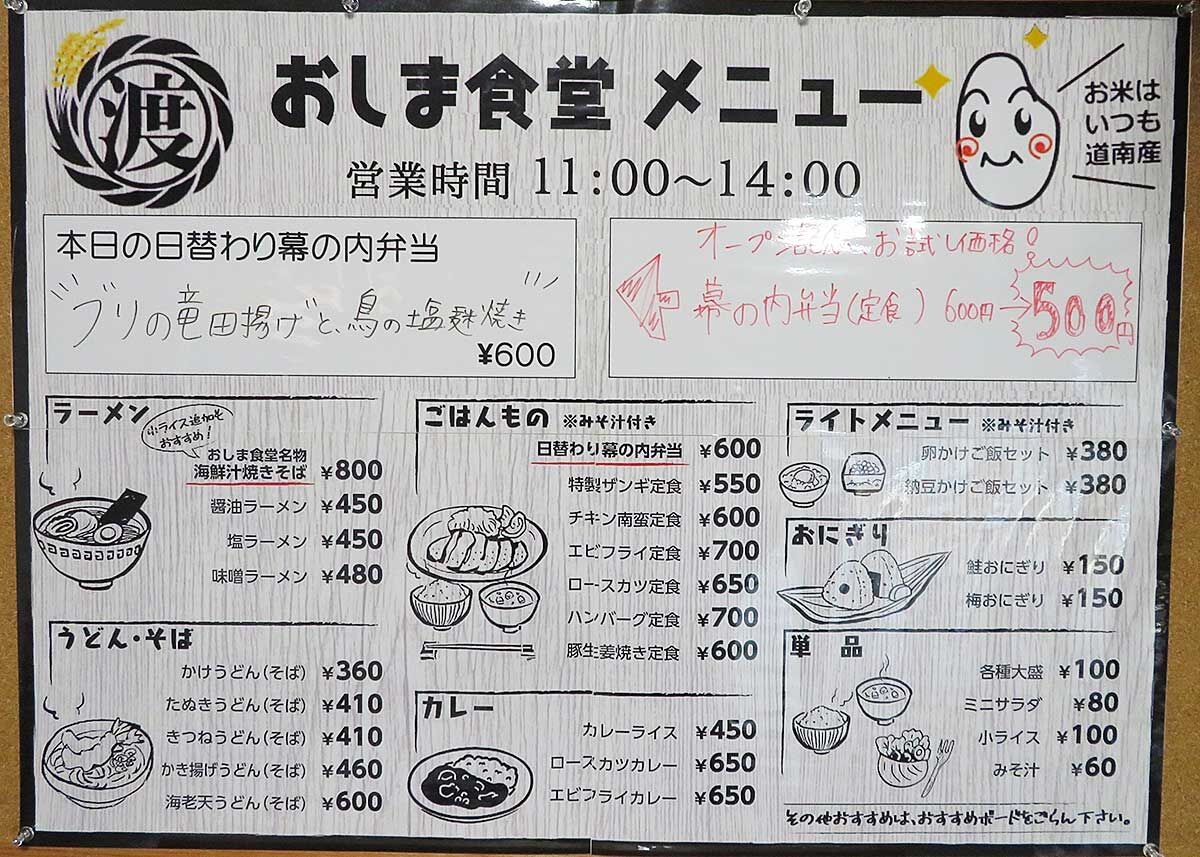 渡
おしま食堂 メニュー
営業時間 11:00～14:00
お米は
いつも
道南産
本日の日替わり幕の内弁当
ブリの竜田揚げと、鳥の塩麹焼き
¥600
お試し価格!
幕の内弁当(定食) 600円→500円
ラーメン
小ライス追加も
おすすめ!
おしま食堂名物
海鮮汁焼きそば ¥800
醤油ラーメン ¥450
塩ラーメン ¥450
味噌ラーメン ¥480
うどん・そば
かけうどん(そば) ¥360
たぬきうどん(そば) ¥410
きつねうどん(そば) ¥410
かき揚げうどん(そば) ¥460
海老天うどん(そば) ¥600
ごはんもの ※みそ汁付き
日替わり幕の内弁当 ¥600
特製ザンギ定食 ¥550
チキン南蛮定食 ¥600
エビフライ定食 ¥700
ロースカツ定食 ¥650
ハンバーグ定食 ¥700
豚生姜焼き定食 ¥600
カレー
カレーライス ¥450
ロースカツカレー ¥650
エビフライカレー ¥650
ライトメニュー ※みそ汁付き
卵かけご飯セット ¥380
納豆かけご飯セット ¥380
おにぎり
鮭おにぎり ¥150
梅おにぎり ¥150
単品
各種大盛 ¥100
ミニサラダ ¥80
小ライス ¥100
みそ汁 ¥60
その他おすすめは、おすすめボードをごらん下さい。